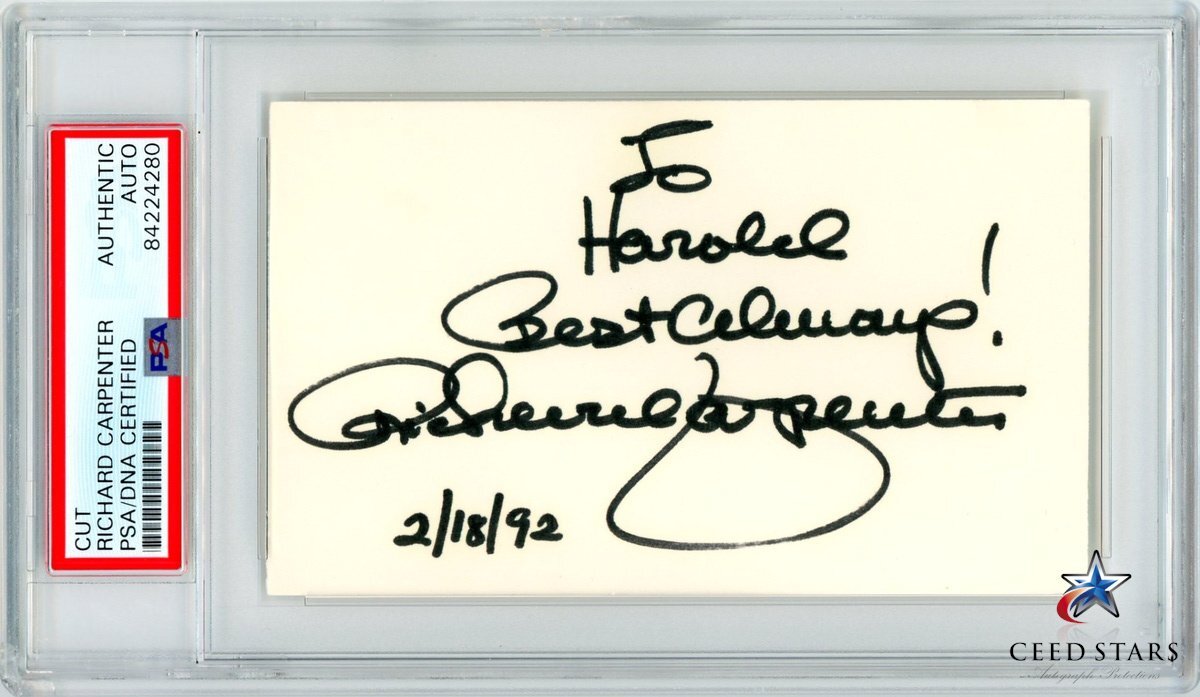 CUT
RICHARD CARPENTER
PSA/DNA CERTIFIED
AUTHENTIC
AUTO
84224280
PSA
To
Harold
Best Always!
Richard Carpenter
2/18/92
CEED STARS
Autograph Protections